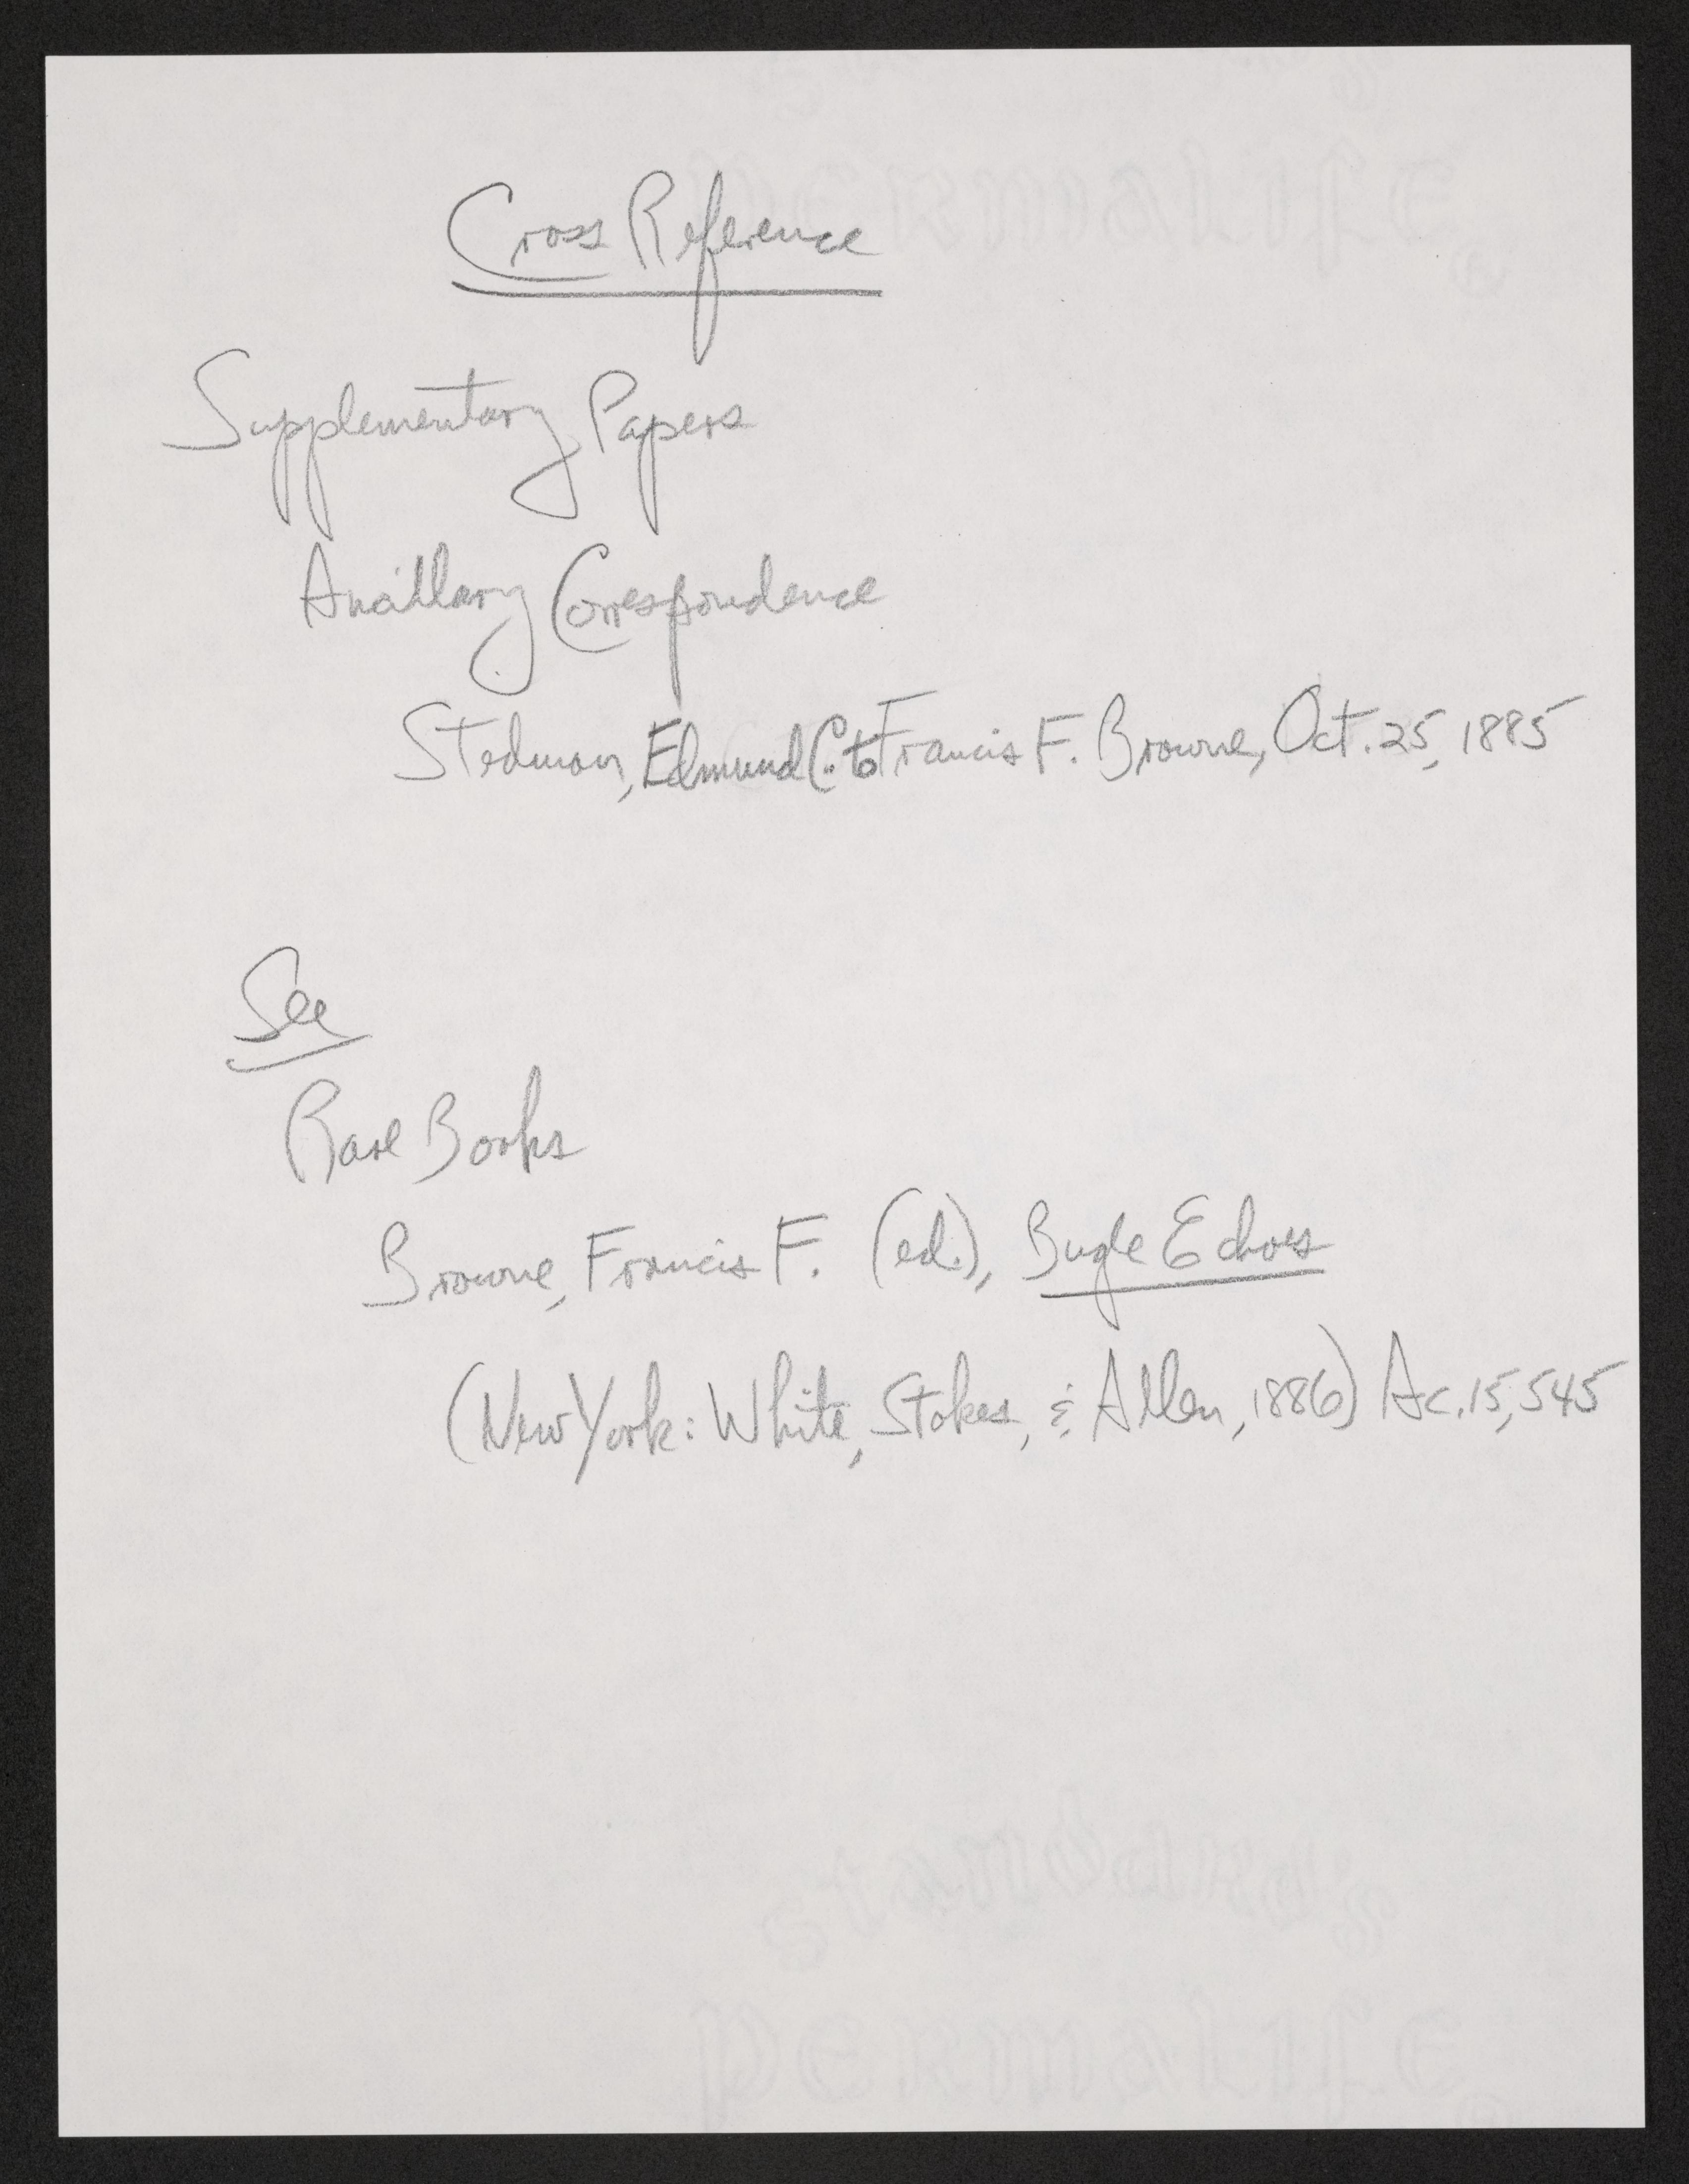 Cross Reference
Supplementary Papers
Ancillary Correspondence
Stedman, Edmund C. to Francis F. Browne, Oct. 25, 1885
See
Rare Books
Browne, Francis F. (ed.), Bugle Echoes
(New York: White, Stokes, & Allen, 1886) Ac. 15,545